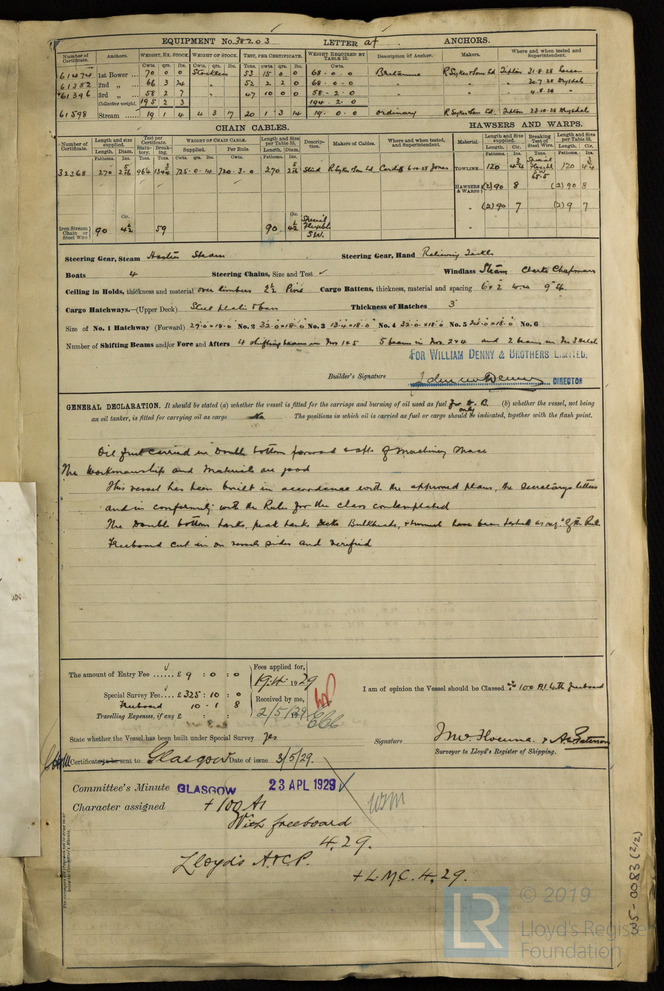 EQUIPMENT No. 38203 LETTER at ANCHORS.
Number of Certificate. Anchors. WEIGHT, EX. STOCK. WEIGHT OF STOCK. TEST, PER CERTIFICATE. WEIGHT REQUIRED BY TABLE 22. Description of Anchor. Makers. Where and when tested and Superintendent.
Cwts. qrs. lbs. Cwts. qrs. lbs. Tons. cwts. qrs. lbs. Cwts.
61474 1st Bower 70 0 0 Stockless 53 15 0 0 68-0-0 Britannic R Sykes & Son Ltd Tipton 31-8-28
61352 2nd „ 66 3 24 52 2 2 0 68-0-0 20-7-28
61396 3rd „ 58 2 7 47 10 0 0 58-2-0 4-8-28
Collective weight. 195 2 3 194-2-0
61598 Stream 19 1 4 4 3 17 20 1 3 14 19-0-0 ordinary R Sykes & Son Ltd Tipton 23-10-28
CHAIN CABLES. HAWSERS AND WARPS.
Number of Certificate. Length and size supplied. Test per Certificate. WEIGHT OF CHAIN CABLE. Length and size per Table 22. Description. Makers of Cables. Where and when tested, and Superintendent. Material. Length and Size supplied. Breaking Test of Steel Wire. Length and Size per Table 22.
Length. Diam. Statutory. Breaking. Supplied. Per Rule. Length. Diam. Length. Cir. Tons. Length. Cir.
32368 270 725-0-4 720-3-0 270 Stud Cardiff 6-10-28 Jones TOWLINE 120 Special Flexible SW 65-5 120
HAWSERS & WARPS (2) 90 8 (2) 90 8
(2) 90 7 (2) 9 7
Iron Stream Chain or Steel Wire 90 4½ 59 90 4½ Special Flexible S.W.
Steering Gear, Steam Hastie Steam Steering Gear, Hand Relieving Tackle
Boats 4 Steering Chains, Size and Test ✓ Windlass Steam Clarke Chapman
Ceiling in Holds, thickness and material over timbers 2½ Pine Cargo Battens, thickness, material and spacing 6 x 2 w.w. 9"
Cargo Hatchways.—(Upper Deck) Steel plates & bars Thickness of Hatches 3"
Size of No. 1 Hatchway (Forward) 29-0 x 18-0 No. 2 33-0 x 18-0 No. 3 13-4 x 18-0 No. 4 33-0 x 18-0 No. 5 No. 6
Number of Shifting Beams and/or Fore and Afters 4 shifting beams in Nos 1 & 5 5 beams in Nos 2 & 4 and 2 beams in No 3 hatch
FOR WILLIAM DENNY & BROTHERS LIMITED.
Builder's Signature DIRECTOR
GENERAL DECLARATION. It should be stated (a) whether the vessel is fitted for the carriage and burning of oil used as fuel for D.B. only (b) whether the vessel, not being
an oil tanker, is fitted for carrying oil as cargo No The positions in which oil is carried as fuel or cargo should be indicated, together with the flash point.
Oil fuel carried in Double bottom forward & aft of Machinery space
The Workmanship and Material are good
This vessel has been built in accordance with the approved plans, the Secretary's letters
and in conformity with the Rules for the class contemplated
The Double bottom tanks, peak tanks, Decks Bulkheads, & tunnel have been tested as req. by the Rule
Freeboard cut in on vessels sides and verified
The amount of Entry Fee ...... £ 9 : 0 : 0 Fees applied for,
19.4. 1929
Special Survey Fee.... £ 325 : 10 : 0 Received by me,
Freeboard 10 - 1 8 2/5/1929
Travelling Expenses, if any £ : :
I am of opinion the Vessel should be Classed 100 A1 with freeboard
State whether the Vessel has been built under Special Survey Yes
Signature
Surveyor to Lloyd's Register of Shipping.
Certificate to be sent to Glasgow Date of issue 3/5/29.
Committee's Minute GLASGOW 23 APL 1929
Character assigned + 100 A1
With freeboard
4.29.
Lloyd's A & C.P.
+ LMC. 4.29.
W5-0083 (2/2)
LR © 2019
Lloyd's Register
Foundation